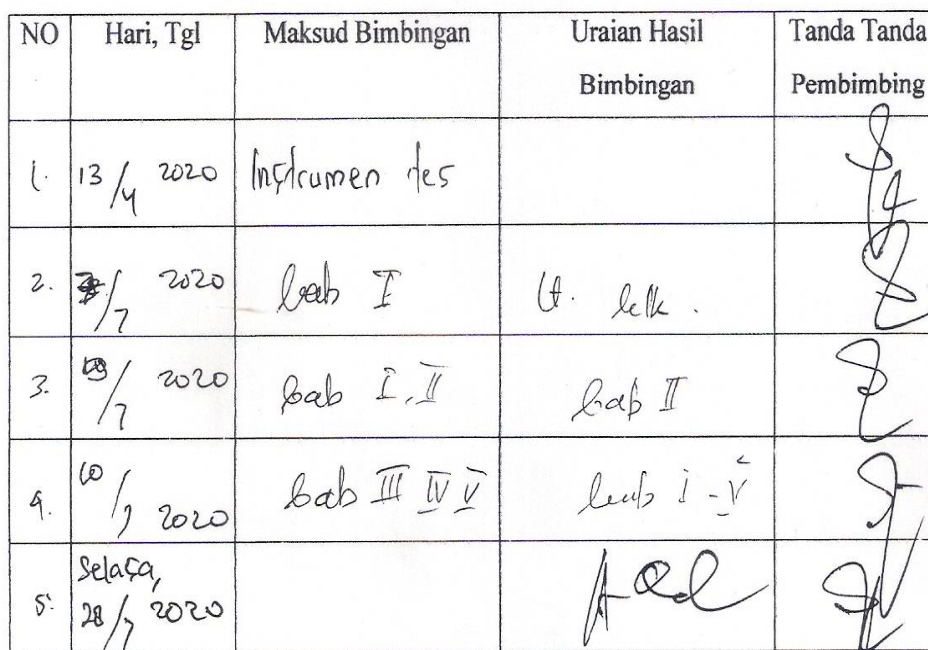 NO Hari, Tgl Maksud Bimbingan Uraian Hasil Bimbingan Tanda Tanda Pembimbing
1. 13/4 2020 Instrumen tes
2. /7 2020 bab I
3. 09/7 2020 bab I, II bab II
4. 10/7 2020 bab III IV V bab I - V
5. Selasa, 28/7 2020